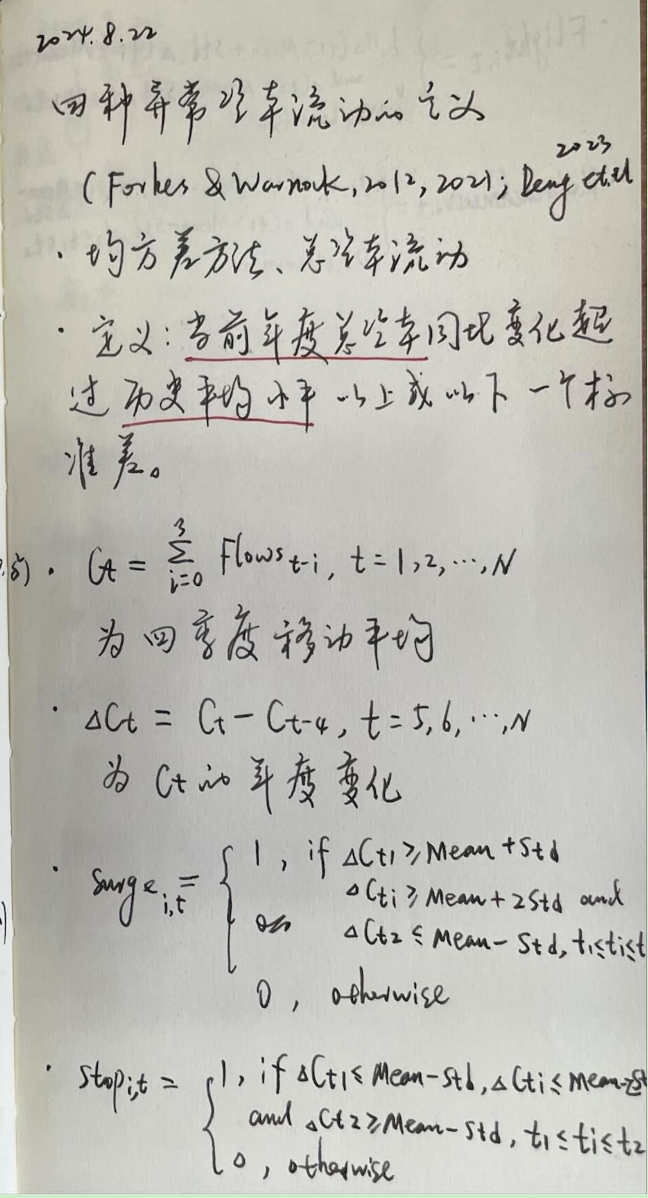 2024.8.22
四种异常资本流动的定义
(Forbes & Warnock, 2012, 2021; Deng et al 2023
· 均方差方法、总资本流动
· 定义: 当前年度总资本同比变化超
过历史平均水平以上或以下一个标
准差。
· Ct = ∑_{i=0}^{3} Flows_{t-i}, t=1,2,…,N
为四季度移动平均
· ΔCt = Ct − Ct-4, t=5,6,…,N
为Ct的年度变化
· Surge_{i,t} = { 1, if ΔCt1 ≥ Mean + Std
ΔCti ≥ Mean + 2Std and
ΔCt2 ≤ Mean − Std, t1≤ti≤t
0, otherwise
· Stop_{i,t} = { 1, if ΔCt1 ≤ Mean − Std, ΔCti ≤ Mean-2St
and ΔCt2 ≥ Mean − Std, t1≤ti≤t2
0, otherwise